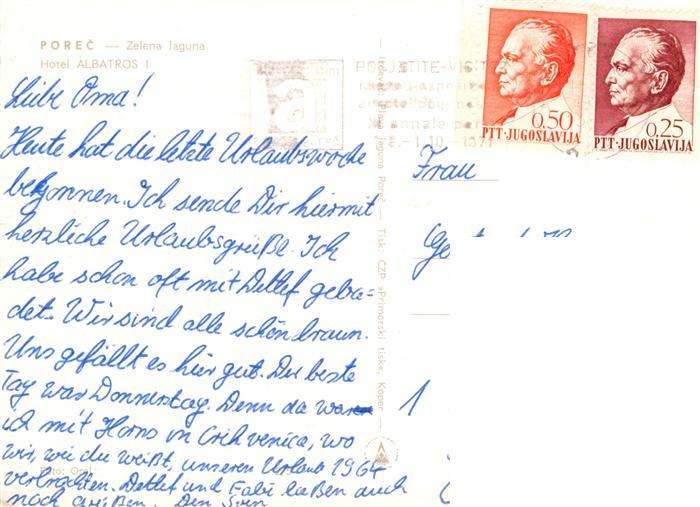 POREČ — Zelena laguna
Hotel ALBATROS I
Liebe Oma!
Heute hat die letzte Urlaubswoche
begonnen. Ich sende Dir hiermit
herzliche Urlaubsgrüße. Ich
habe schon oft mit Detlef geba-
det. Wir sind alle schön braun.
Uns gefällt es hier gut. Der beste
Tag war Donnerstag. Denn da
ich mit Hans in Crikvenica, wo
wir, wie du weißt, unseren Urlaub 1964
verbrachten. Detlef und Fabi ließen auch
noch grüßen. Dein Sven
Foto:
Poreč — Tisk. ČZP »Primorski tisk«, Koper
POSJETITE-VISIT
1971
0,50
PTT·JUGOSLAVIJA
0,25
PTT·JUGOSLAVIJA
Frau
1